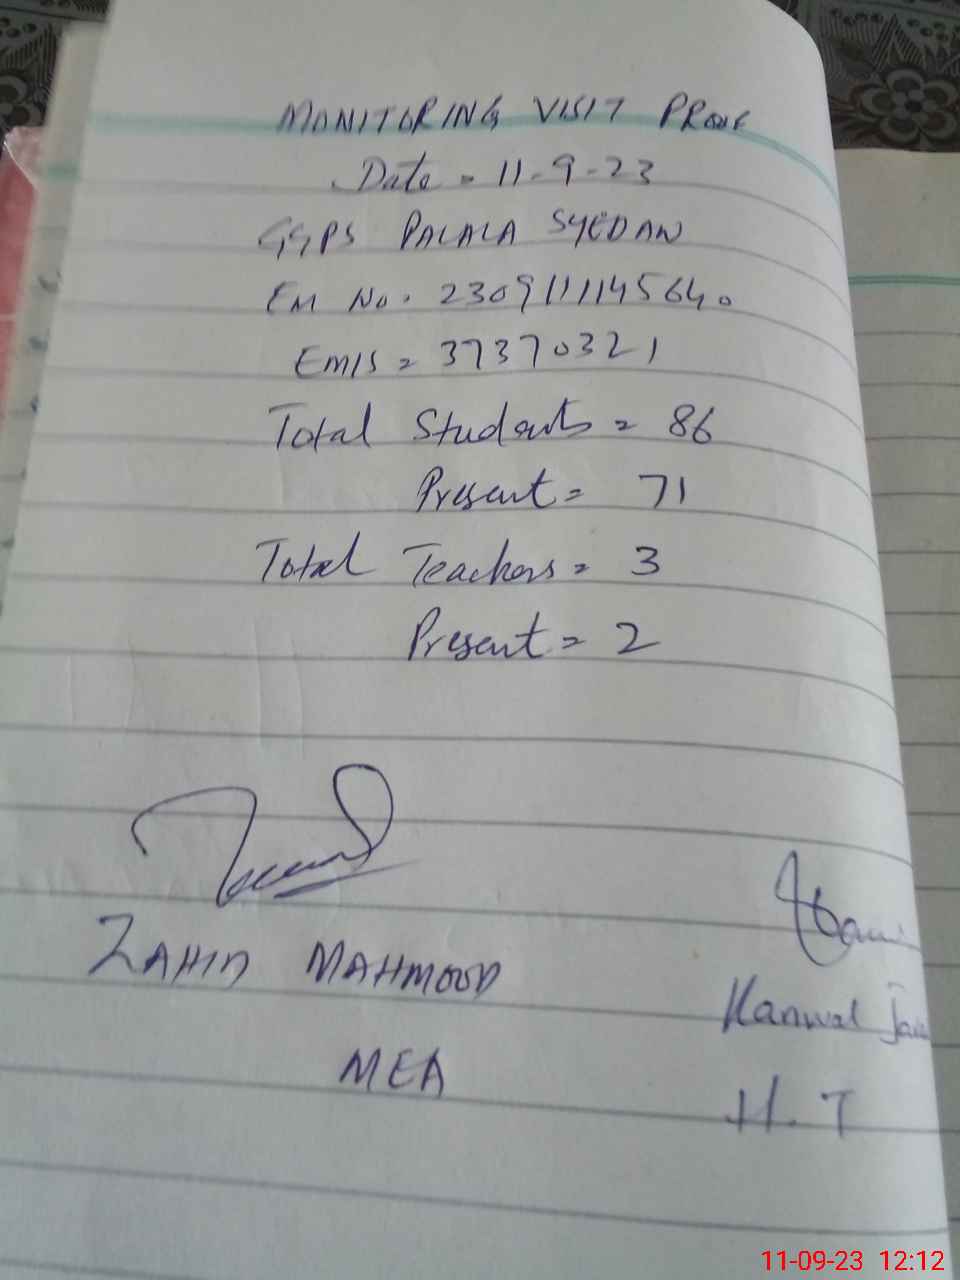 MONITORING VISIT PROOF
Date = 11-9-23
GGPS PALALA SYEDAN
EM No. 2309111145640
EMIS = 37370321
Total Students = 86
Present = 71
Total Teachers = 3
Present = 2
ZAHID MAHMOOD
MEA
Kanwal
H.T
11-09-23 12:12